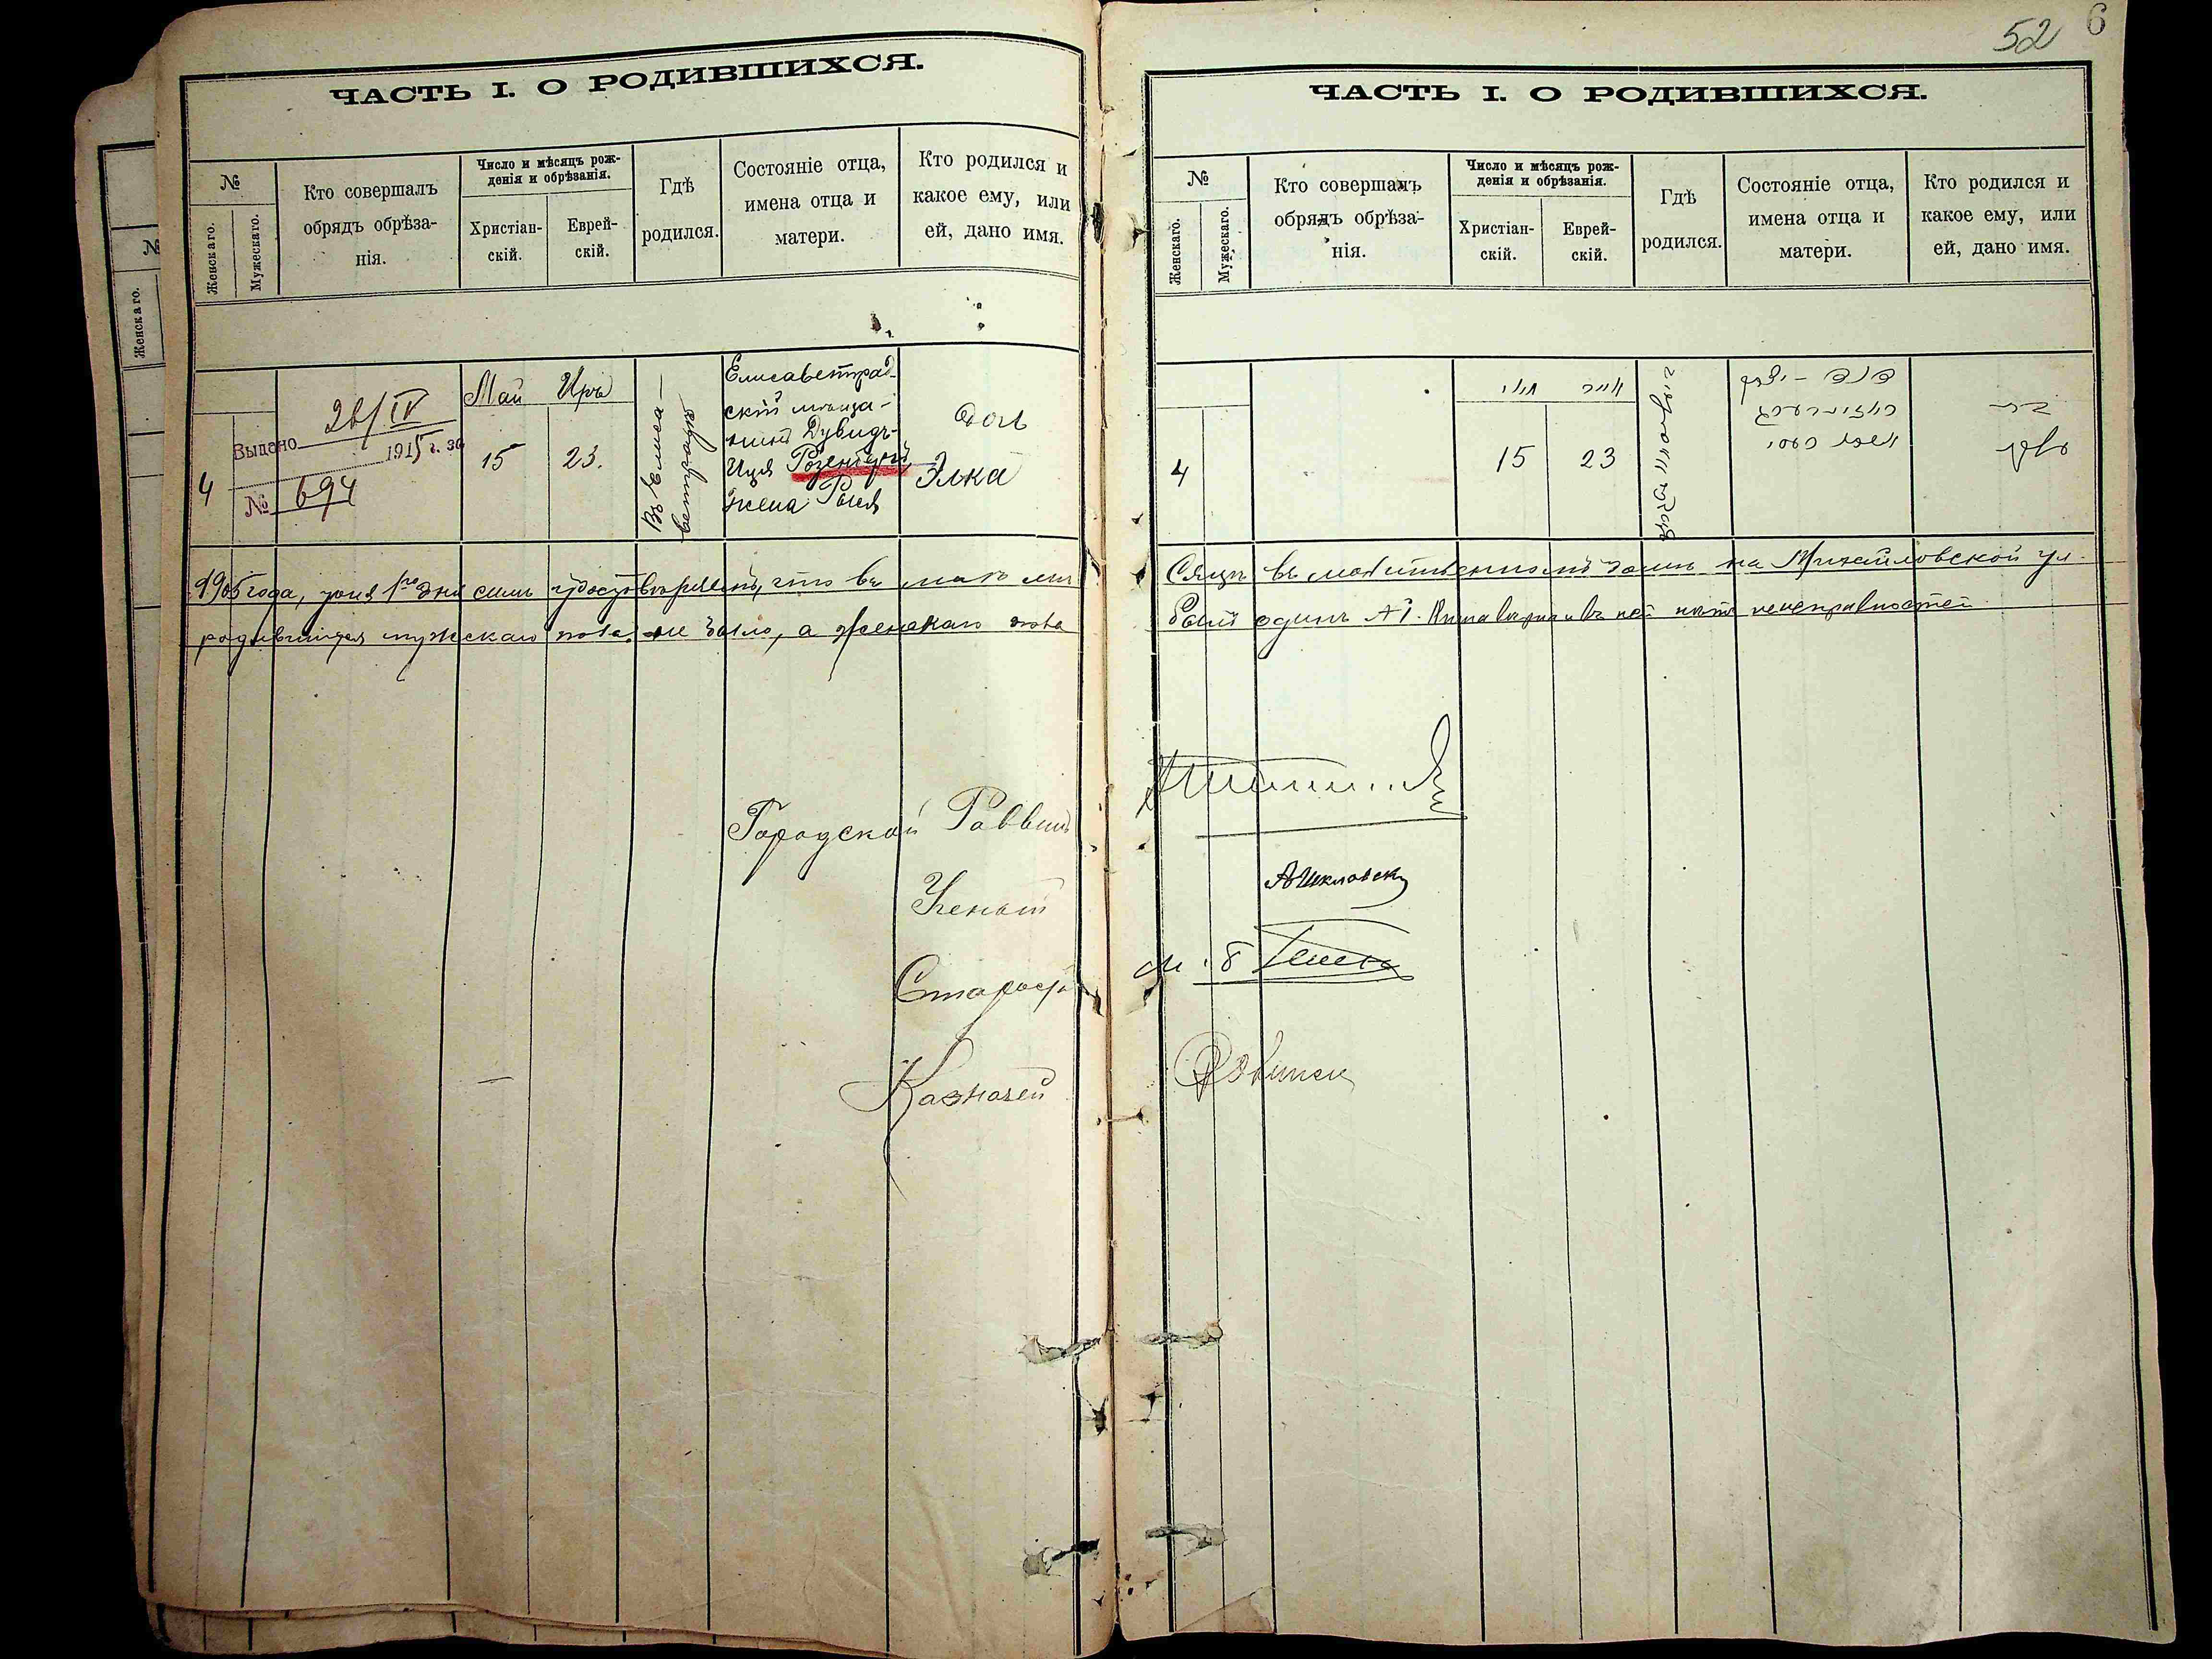 ЧАСТЬ I. О РОДИВШИХСЯ.
№
Женскаго.
Мужескаго.
Кто совершалъ
обрядъ обрѣза-
нія.
Число и мѣсяцъ рож-
денія и обрѣзанія.
Христіан-
скій.
Еврей-
скій.
Гдѣ
родился.
Состояніе отца,
имена отца и
матери.
Кто родился и
какое ему, или
ей, дано имя.
4
Выдано 26/IV
1915 г. за
№ 694
Май Иръ
15 23.
Въ Елиса-
ветградѣ
Елисаветград-
скій мѣща-
нинъ Дувидъ-
Иця
жена Рейзя
дочь
Элка
1905 года, іюня 1го дня симъ удостовѣряемъ, что въ маѣ мѣс
родившихся мужскаго пола не было, а женскаго пола
Городской Раввинъ
Ученый
Староста
Казначей
52 6
ЧАСТЬ I. О РОДИВШИХСЯ.
№
Женскаго.
Мужескаго.
Кто совершалъ
обрядъ обрѣза-
нія.
Число и мѣсяцъ рож-
денія и обрѣзанія.
Христіан-
скій.
Еврей-
скій.
Гдѣ
родился.
Состояніе отца,
имена отца и
матери.
Кто родился и
какое ему, или
ей, дано имя.
4
מאי אייר
15 23
בת
въ молитвенномъ домѣ на Михайловской ул.
одинъ №1. въ ней нѣтъ неисправностей
АШкловскі